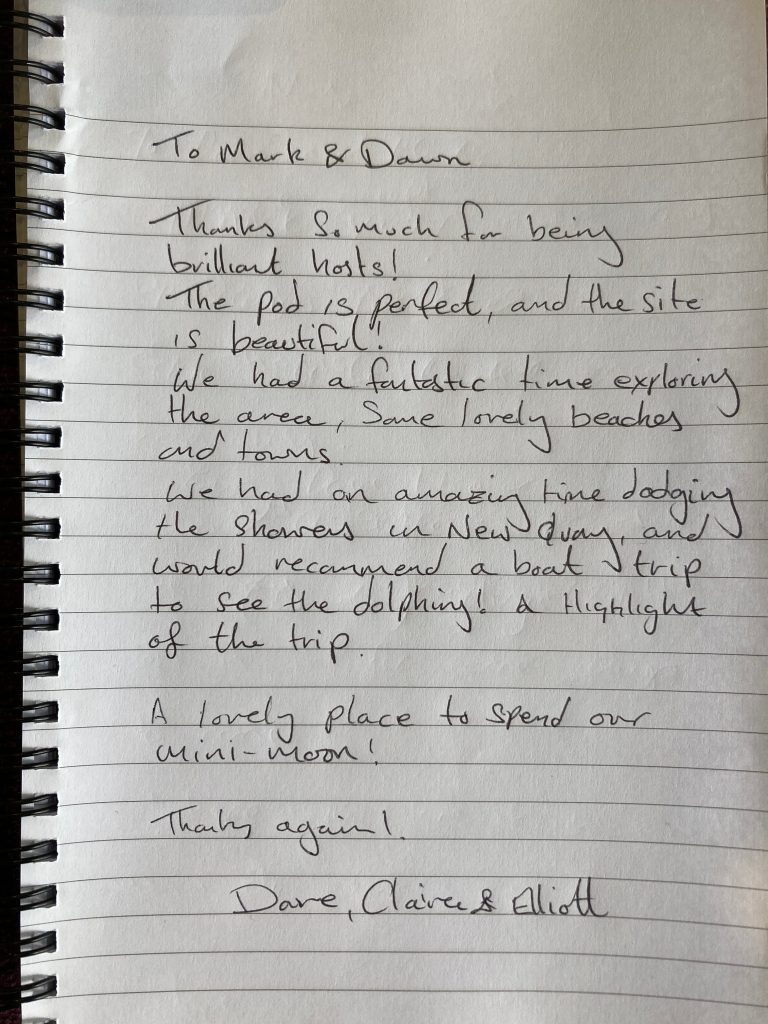 To Mark & Dawn
Thanks So much for being
brilliant hosts!
The pod is perfect, and the site
is beautiful!
We had a fantastic time exploring
the area, Some lovely beaches
and towns.
We had an amazing time dodging
the showers in New Quay, and
would recommend a boat trip
to see the dolphins! A Highlight
of the trip.
A lovely place to spend our
mini-moon!
Thanks again!.
Dave, Claire & Elliott